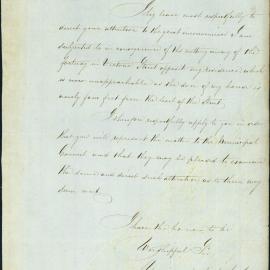 I beg leave most respectfully to
direct your attention to the great inconvenience I am
subjected to in consequence of the cutting away of the
footway in Victoria Street opposite my residence which
is now unapproachable as the door of my house is
nearly four feet from the level of the Street.
I therefore respectfully apply to you in order
that you will represent the matter to the Municipal
Council and that they may be pleased to examine
the same and direct such alteration as to them may
seem meet.
I have the honor to be
Worshipful Sir